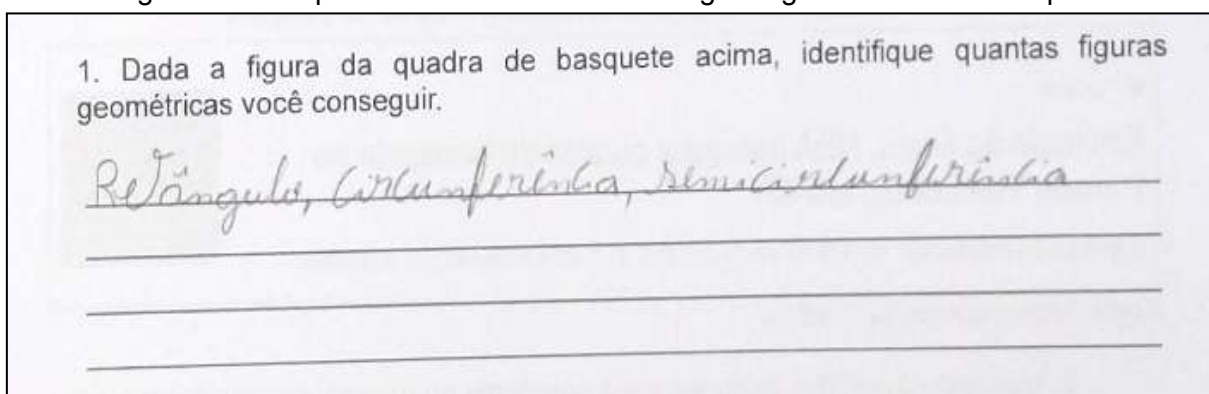 1. Dada a figura da quadra de basquete acima, identifique quantas figuras
geométricas você conseguir.
Retângulo, circunferência, semicircunferência